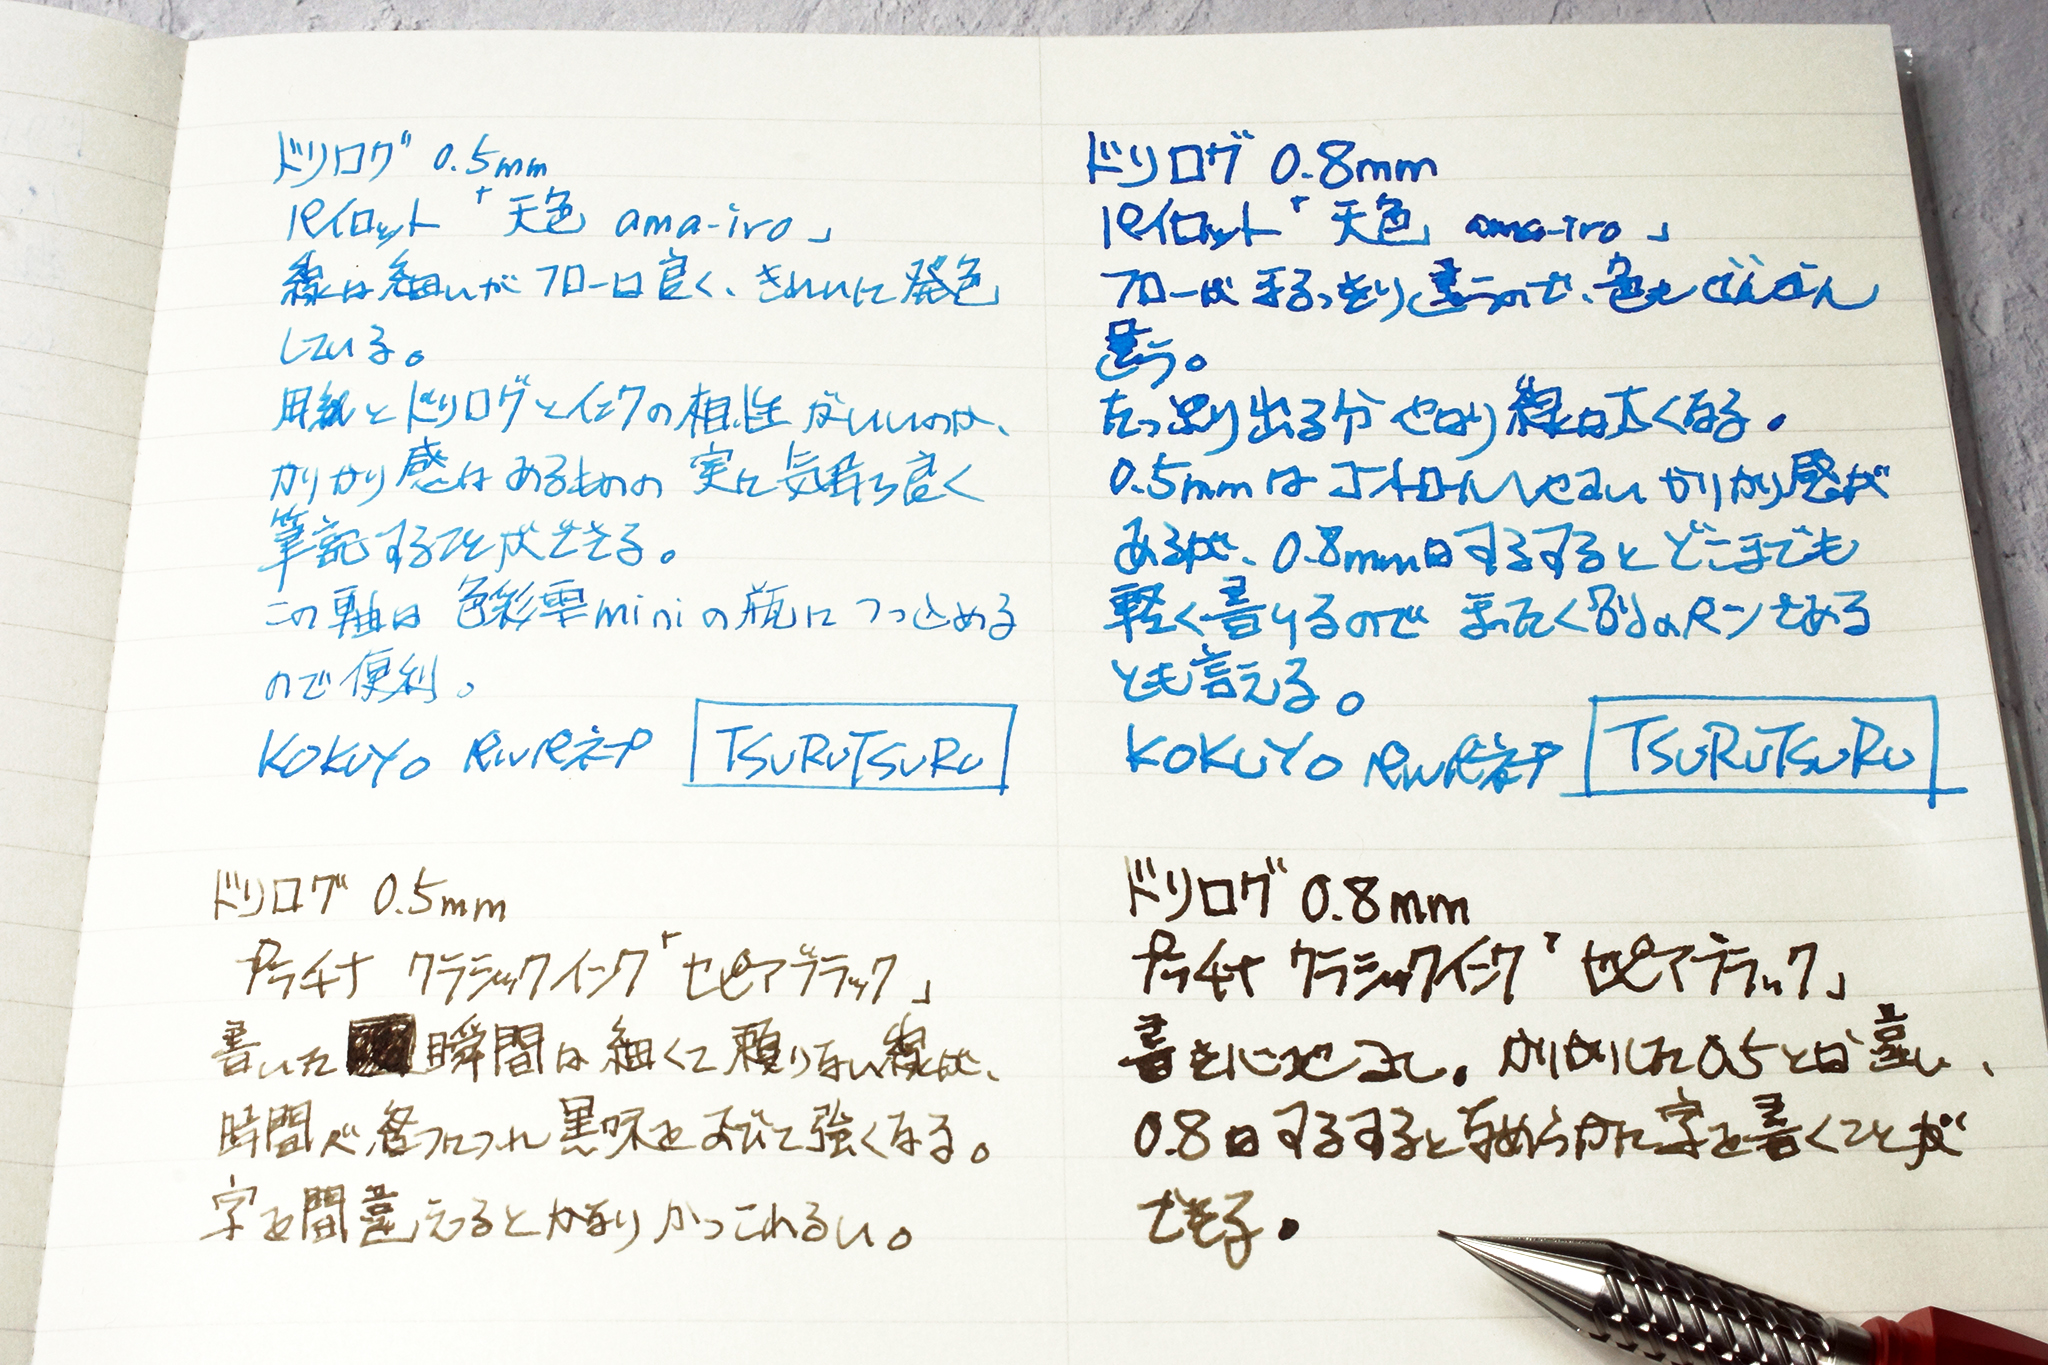 ドリログ 0.5mm
パイロット「天色 ama-iro」
線は細いがフローは良く、きれいに発色
している。
用紙とドリログとインクの相性がいいのか、
かりかり感はあるものの実に気持ち良く
筆記することができる。
この軸は色彩雫miniの瓶につっ込める
ので便利。
KOKUYO PERPANEP TSURUTSURU
ドリログ 0.8mm
パイロット「天色 ama-iro」
フローがまるっきり違うので、色もぜんぜん
違う。
たっぷり出る分やはり線は太くなる。
0.5mmはコントロールしやすいかりかり感が
あるが、0.8mmはするするとどこまでも
軽く書けるのでまったく別のペンである
とも言える。
KOKUYO PERPANEP TSURUTSURU
ドリログ 0.5mm
プラチナ クラシックインク「セピアブラック」
書いた瞬間は細くて頼りない線が、
時間が経つにつれ黒味をおびて強くなる。
字を間違えるとかなりかっこわるい。
ドリログ 0.8mm
プラチナ クラシックインク「セピアブラック」
書き心地よし。かりかりした0.5とは違い、
0.8はするするとなめらかに字を書くことが
できる。